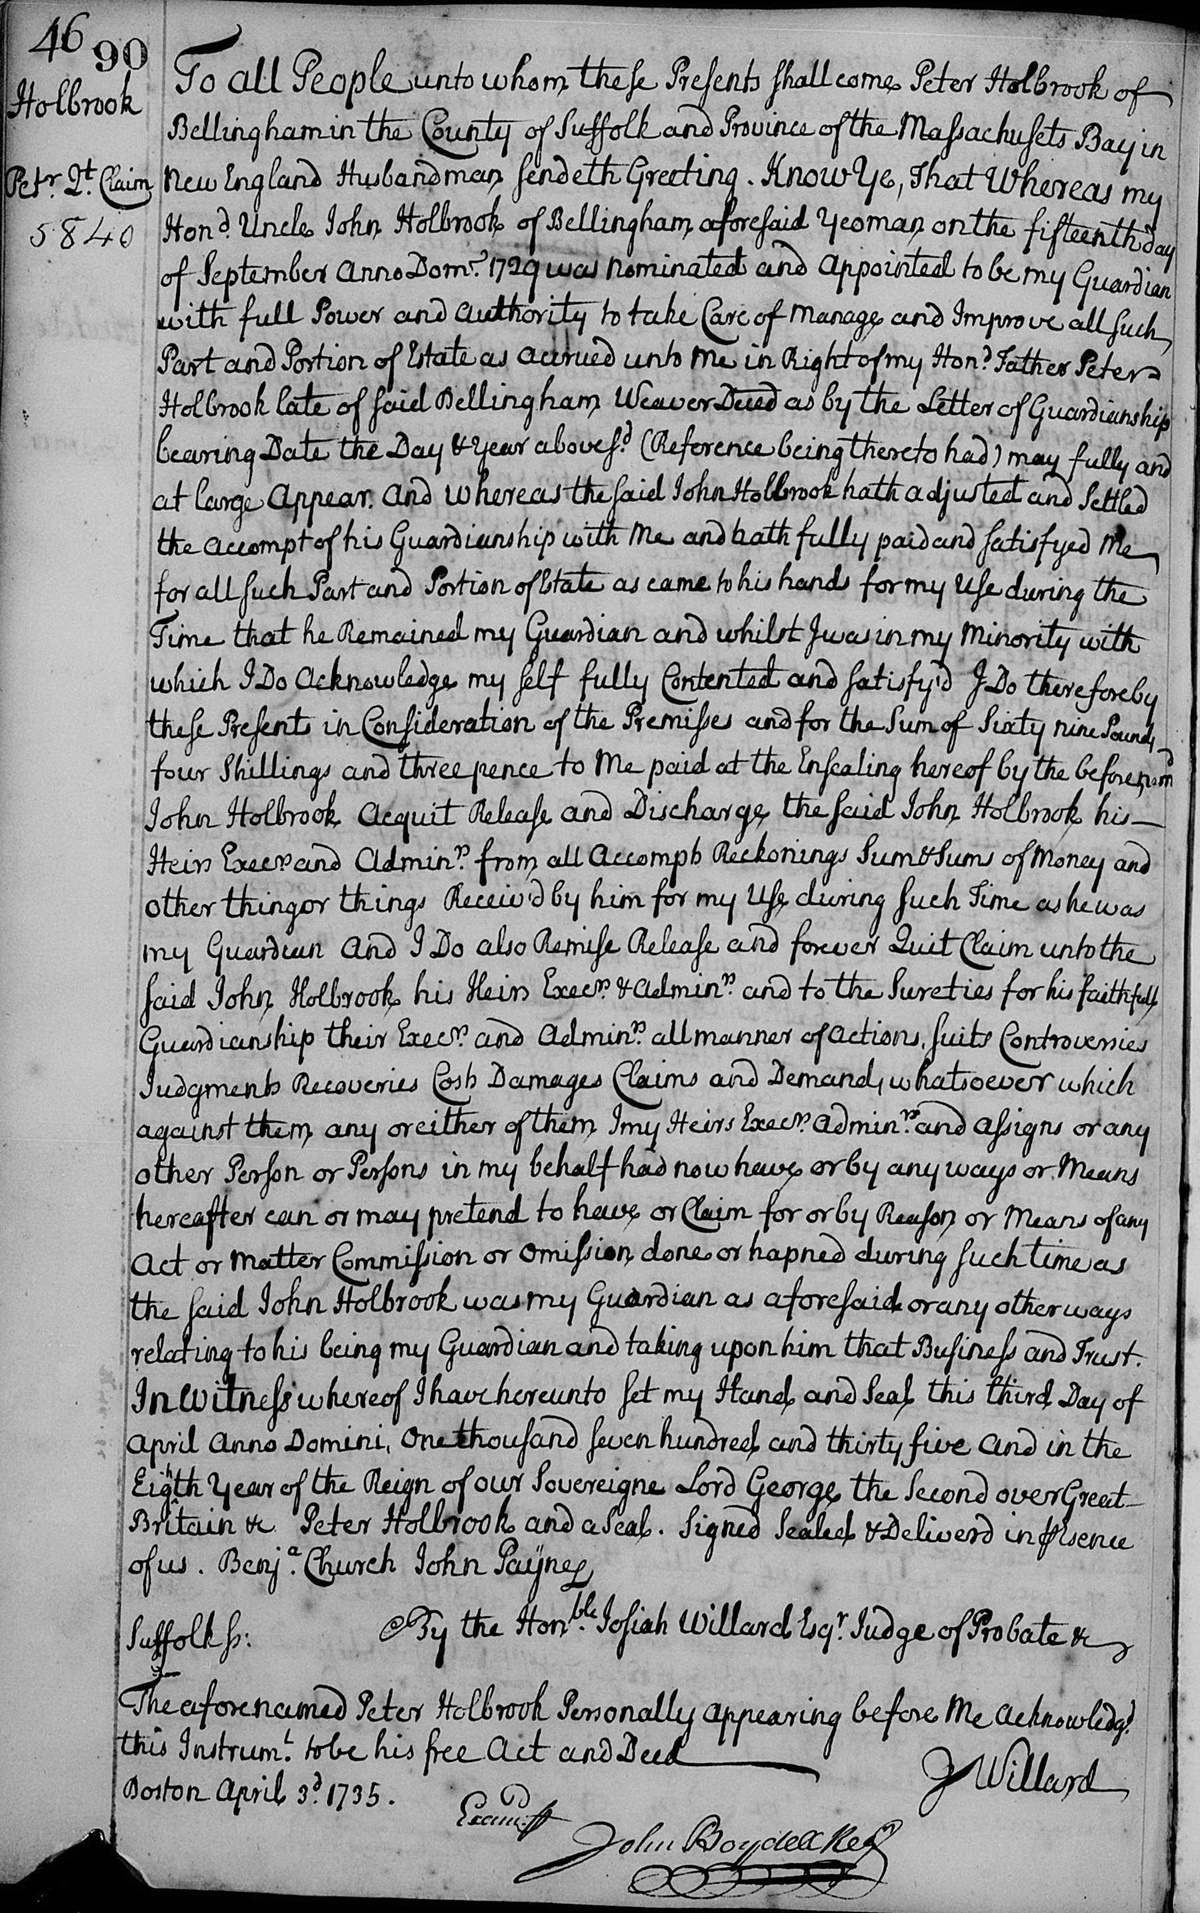 46 90
Holbrook
Petr. Qt. Claim
5840
To all People unto whom these Presents shall come Peter Holbrook of
Bellingham in the County of Suffolk and Province of the Massachusets Bay in
New England Husbandman sendeth Greeting. Know Ye, That Whereas my
Hond. Uncle John Holbrook of Bellingham aforesaid Yeoman on the fifteenth day
of September Anno Domi. 1729 was nominated and Appointed to be my Guardian
with full Power and Authority to take Care of manage and Improve all such
Part and Portion of Estate as accrued unto Me in Right of my Hond. Father Peter
Holbrook late of said Bellingham Weaver Deced as by the Letter of Guardianship
bearing Date the Day & Year abovesd. (Reference being thereto had) may fully and
at large Appear. And whereas the said John Holbrook hath adjusted and Settled
the Accompt of his Guardianship with Me and hath fully paid and satisfyed Me
for all such Part and Portion of Estate as came to his hands for my Use during the
Time that he Remained my Guardian and whilst I was in my Minority with
which I Do Acknowledge my self fully Contented and satisfy'd I Do therefore by
these Present in Consideration of the Premisses and for the Sum of Sixty nine Pounds
four Shillings and three pence to Me paid at the Ensealing hereof by the beforenamd
John Holbrook Acquit Release and Discharge the said John Holbrook his
Heirs Execrs. and Adminrs. from all Accompts Reckonings Sum & Sums of Money and
other thing or things Receiv'd by him for my Use during such Time as he was
my Guardian And I Do also Remise Release and forever Quit Claim unto the
said John Holbrook his Heirs Execrs. & Adminrs. and to the Sureties for his faithfull
Guardianship their Execrs. and Adminrs. all manner of Actions, suits Controversies
Judgments Recoveries Costs Damages Claims and Demands whatsoever which
against them any or either of them I my Heirs Execrs. Adminrs. and Assigns or any
other Person or Persons in my behalf had now have or by any ways or Means
hereafter can or may pretend to have or Claim for or by Reason or Means of any
Act or Matter Commission or Omission done or hapned during such time as
the said John Holbrook was my Guardian as aforesaid or any other ways
relating to his being my Guardian and taking upon him that Business and Trust.
In Witness whereof I have hereunto set my Hand and Seal this third Day of
April Anno Domini, One thousand seven hundred and thirty five And in the
Eighth Year of the Reign of our Sovereigne Lord George the Second over Great
Britain &c Peter Holbrook and a Seal. Signed Sealed & Deliverd in Prsence
of us. Benja. Church John Payne
Suffolk ss: By the Honble. Josiah Willard Esqr. Judge of Probate &c
The aforenamed Peter Holbrook Personally appearing before Me Acknowledgd.
this Instrumt. to be his free Act and Deed
Boston April 3d. 1735. J Willard
Examd. p
John Boydell Regr